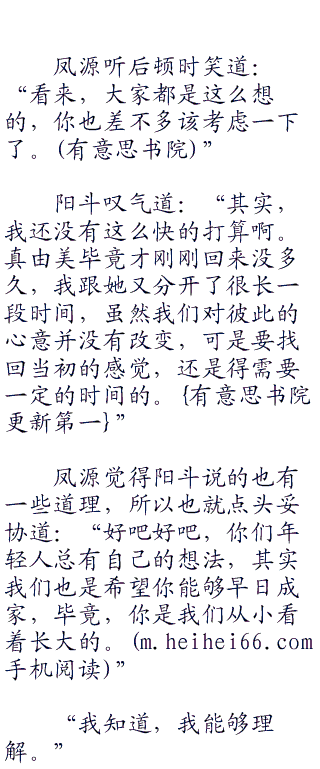 凤源听后顿时笑道：
“看来，大家都是这么想
的，你也差不多该考虑一下
了。(有意思书院)”
阳斗叹气道：“其实，
我还没有这么快的打算啊。
真由美毕竟才刚刚回来没多
久，我跟她又分开了很长一
段时间，虽然我们对彼此的
心意并没有改变，可是要找
回当初的感觉，还是得需要
一定的时间的。{有意思书院
更新第一}”
凤源觉得阳斗说的也有
一些道理，所以也就点头妥
协道：“好吧好吧，你们年
轻人总有自己的想法，其实
我们也是希望你能够早日成
家，毕竟，你是我们从小看
着长大的。(m.heihei66.com
手机阅读)”
“我知道，我能够理
解。”